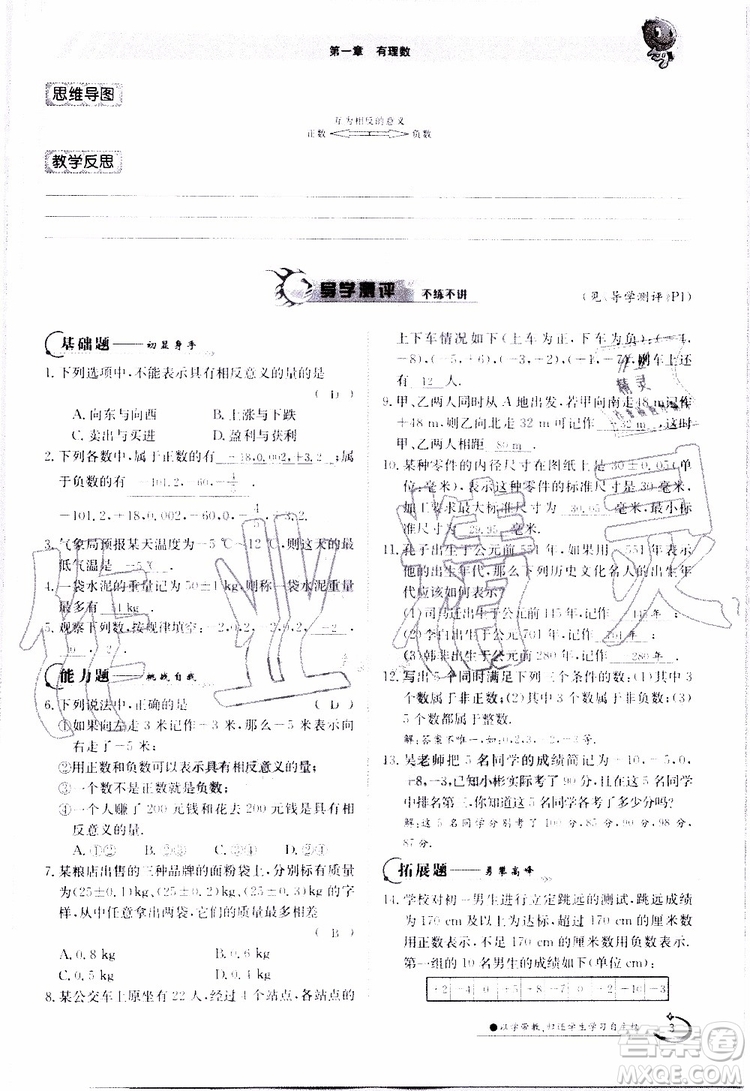 第一章 有理数
思维导图
互为相反的意义
正数 负数
教学反思
导学测评 不练不讲
(见《导学测评》P1)
基础题——初显身手
1. 下列选项中,不能表示具有相反意义的量的是
( D )
A. 向东与向西 B. 上涨与下跌
C. 卖出与买进 D. 盈利与获利
2. 下列各数中,属于正数的有 +18,0.002,+3.2 ;属
于负数的有
-101.2,+18,0.002,-60,0,
3. 气象局预报某天温度为-5 ℃~12 ℃,则当天的最
低气温是 -5 ℃
4. 一袋水泥的重量记为50±1 kg,则称一袋水泥重量
最多超出 1 kg.
5. 观察下列数,按规律填空:-2,0,2,-2,0,2,
0 , 2
能力题——挑战自我
6. 下列说法中,正确的是 ( D )
①如果向左走3米记作+3米,那么-5米表示向
右走了-5米;
②用正数和负数可以表示具有相反意义的量;
③一个数不是正数就是负数;
④一个人赚了200元钱和花去200元钱是具有相
反意义的量.
A. ①② B. ②③ C. ①④ D. ②④
7. 某粮店出售的三种品牌的面粉袋上,分别标有质量
为(25±0.1)kg,(25±0.2)kg,(25±0.3)kg的
字样,从中任意拿出两袋,它们的质量最多相差
( B )
A. 0.8 kg B. 0.6 kg
C. 0.5 kg D. 0.4 kg
8. 某公交车上原坐有22人,经过4个站点,各站点的
上下车情况如下(上车为正,下车为负):(+4,
-8),(-5,+6),
有 12 人.
9. 甲、乙两人同时从A地出发,若甲向南走48 m记作
+48 m,则乙向北走32 m记作 -32 m ,这时甲、
乙两人相距 80 m .
10. 某种零件的内径尺寸在图纸上是30±0.05(单
位:毫米),表示这种零件的标准尺寸是30毫米,
加工要求最大尺寸为 30.05 毫米,最小不
超过 29.95 毫米.
11. 孔子出生于公元前551年,用-551年表示,
那么下列历史文化名人的出生年
代应该如何表示?
(1)司马迁出生于公元前145年,记作 -145年 ;
(2)李白出生于公元701年,记作 701年 ;
(3)韩非出生于公元前280年,记作 -280年 .
12. 写出5个同时满足下列三个条件的数:(1)其中3
个数属于非正数;(2)其中3个数属于非负数;(3)
5个数都属于整数.
13. 吴老师把5名同学的成绩简记为-10,-5,0,
+8,-3,已知小彬实际考了90分,且在5名同学
中排名第三,你知道这5名同学各考了多少分吗?
拓展题——勇攀高峰
14. 学校对初一男生进行立定跳远的测试,跳远成绩
为170 cm及以上为达标,超过170 cm的厘米数
用正数表示,不足170 cm的厘米数用负数表示.
第一组的10名男生的成绩如下(单位cm):
+2 -4 0 +5 +8 -7 0 +2 -10 -3
●以学带教,归还学生学习自主权
3
作业精灵
答案圈
MXQE.COM